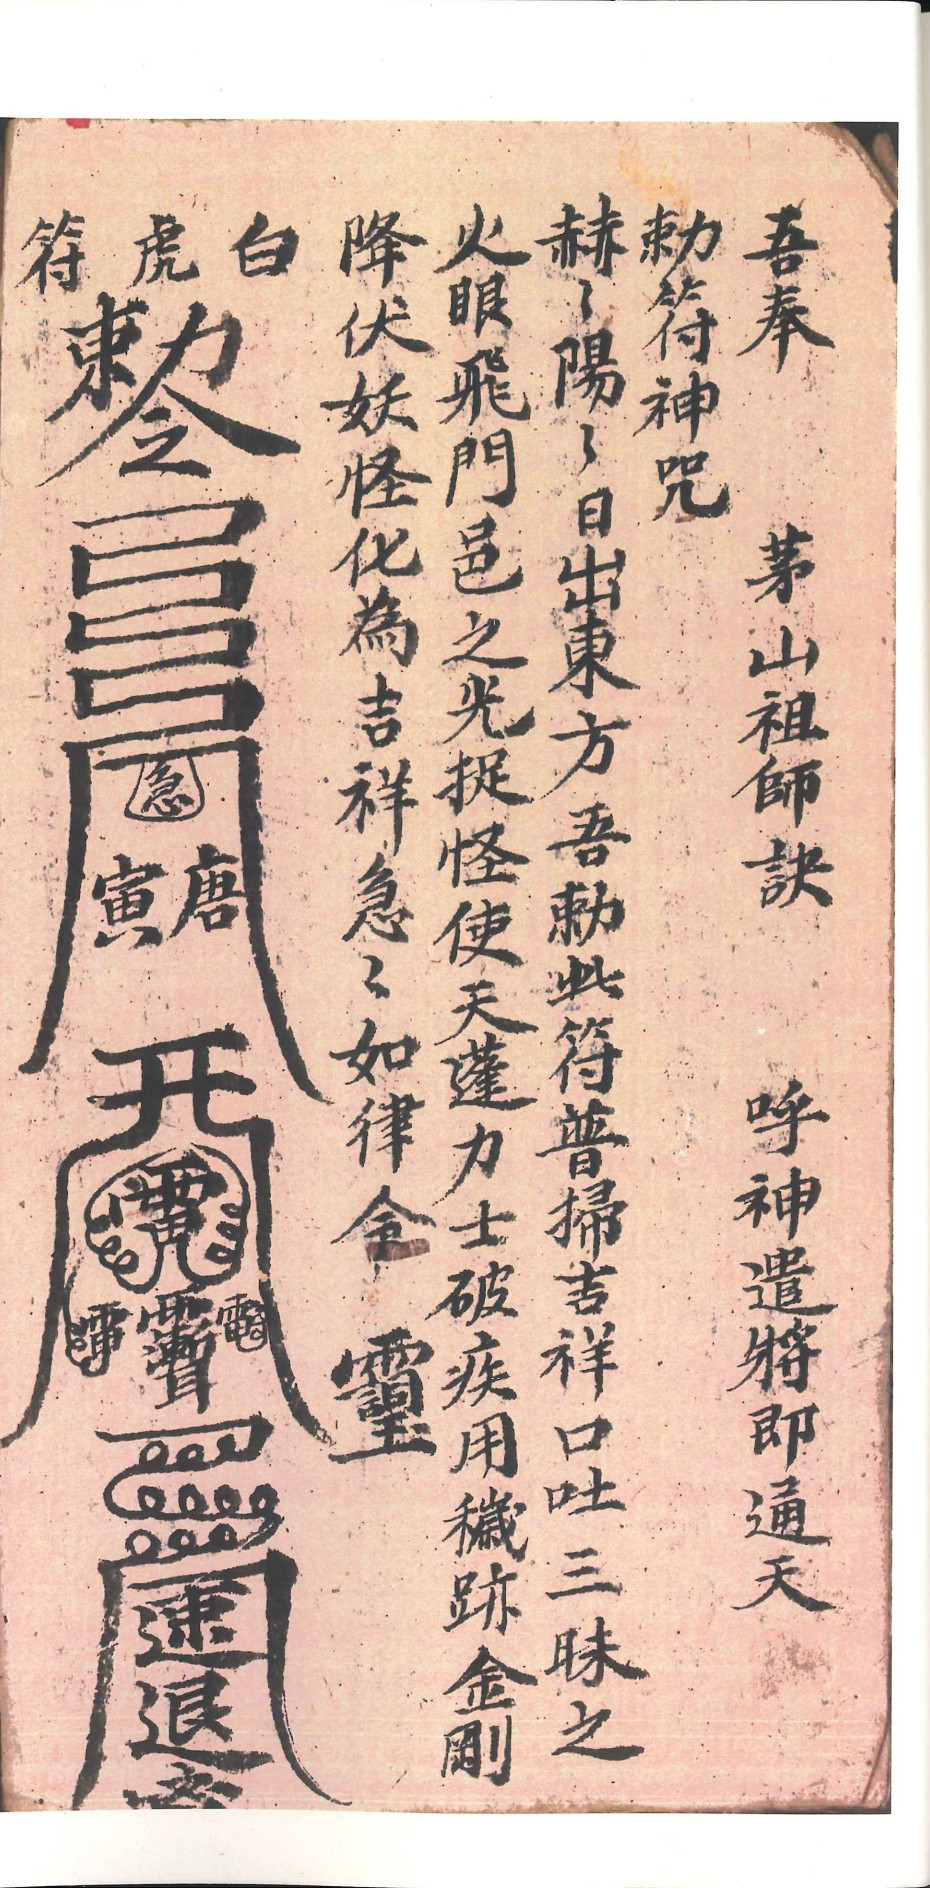 吾奉 茅山祖師訣 呼神遣將即通天
勅符神咒
赫〻陽〻日出東方吾勅此符普掃吉祥口吐三昧之
火眼飛門邑之光捉怪使天蓬力士破疾用穢跡金剛
降伏妖怪化為吉祥急〻如律令
白虎符
勅令
急
唐
寅
速退